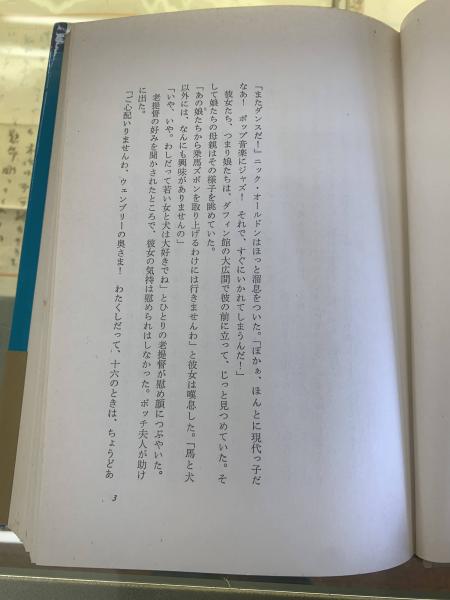 「またダンスだ!」ニック・オールドンはほっと溜息をついた。「ぼかぁ、ほんとに現代っ子だ
なあ! ポップ音楽にジャズ! それで、すぐにいかれてしまうんだ!」
彼女たち、つまり娘たちは、ダフィン館の大広間で彼の前に立って、じっと見つめていた。そ
して娘たちの母親はその様子を眺めていた。
「あの娘たちから乗馬ズボンを取り上げるわけには行きませんわ」と彼女は嘆息した。「馬と犬
以外には、なんにも興味がありませんの」
「いや、いや。わしだって若い女と犬は大好きでね」とひとりの老提督が慰め顔につぶやいた。
老提督の好みを聞かされたところで、彼女の気持は慰められはしなかった。ボッチ夫人が助け
に出た。
「ご心配いりませんわ、ウェンブリーの奥さま! わたくしだって、十六のときは、ちょうどあ
3